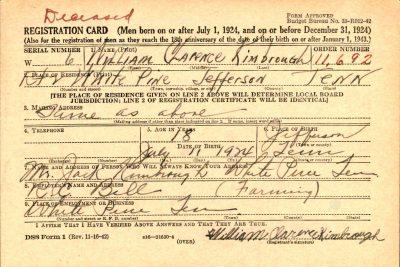 Deceased
FORM APPROVED
Budget Bureau No. 33-R012-42
REGISTRATION CARD—(Men born on or after July 1, 1924, and on or before December 31, 1924)
(Also for the registration of men as they reach the 18th anniversary of the date of their birth on or after January 1, 1943.)
SERIAL NUMBER 1. NAME (Print) ORDER NUMBER
6 William Clarence Kimbrough 11,692
(First) (Middle) (Last)
2. PLACE OF RESIDENCE (Print)
White Pine Jefferson Tenn
(Number and street) (Town, township, village, or city) (County) (State)
[THE PLACE OF RESIDENCE GIVEN ON LINE 2 ABOVE WILL DETERMINE LOCAL BOARD
JURISDICTION; LINE 2 OF REGISTRATION CERTIFICATE WILL BE IDENTICAL]
3. MAILING ADDRESS
Same as above
[Mailing address if other than place indicated on line 2. If same, insert word same]
4. TELEPHONE 5. AGE IN YEARS 6. PLACE OF BIRTH
18 Jefferson
DATE OF BIRTH
July 1924 Tenn
7. NAME AND ADDRESS OF PERSON WHO WILL ALWAYS KNOW YOUR ADDRESS
Jack Kimbrough White Pine Tenn
8. EMPLOYER'S NAME AND ADDRESS
Bell (Farming)
9. PLACE OF EMPLOYMENT OR BUSINESS
White Pine Tenn
(Number and street or R. F. D. number) (Town) (County) (State)
I AFFIRM THAT I HAVE VERIFIED ABOVE ANSWERS AND THAT THEY ARE TRUE.
DSS Form 1 (Rev. 11-16-42) 16—21630-4 William Clarence Kimbrough
(OVER) (Registrant's signature)